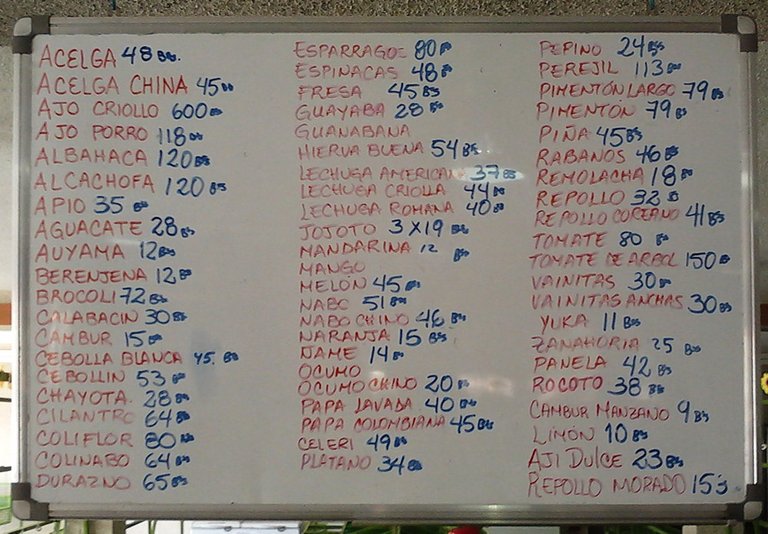 ACELGA 48 Bs.
ACELGA CHINA 45 Bs
AJO CRIOLLO 600 Bs
AJO PORRO 118 Bs
ALBAHACA 120 Bs
ALCACHOFA 120 Bs
APIO 35 Bs
AGUACATE 28 Bs
AUYAMA 12 Bs
BERENJENA 12 Bs
BROCOLI 72 Bs
CALABACIN 30 Bs
CAMBUR 15 Bs
CEBOLLA BLANCA 45. Bs
CEBOLLIN 53 Bs
CHAYOTA. 28 Bs
CILANTRO 64 Bs
COLIFLOR 80 Bs
COLINABO 64 Bs
DURAZNO 65 Bs
ESPARRAGOS 80 Bs
ESPINACAS 48 Bs
FRESA 45 Bs
GUAYABA 28 Bs
GUANABANA
HIERVA BUENA 54 Bs
LECHUGA AMERICANA 37 Bs
LECHUGA CRIOLLA 44 Bs
LECHUGA ROMANA 40 Bs
JOJOTO 3 X 19 Bs
MANDARINA 12 Bs
MANGO
MELÓN 45 Bs
NABO 51 Bs
NABO CHINO 46 Bs
NARANJA 15 Bs
ÑAME 14 Bs
OCUMO
OCUMO CHINO 20 Bs
PAPA LAVADA 40 Bs
PAPA COLOMBIANA 45 Bs
CELERI 49 Bs
PLATANO 34 Bs
PEPINO 24 Bs
PEREJIL 113 Bs
PIMENTÓN LARGO 79 Bs
PIMENTÓN 79 Bs
PIÑA 45 Bs
RABANOS 46 Bs
REMOLACHA 18 Bs
REPOLLO 32 Bs
REPOLLO COREANO 41 Bs
TOMATE 80 Bs
TOMATE DE ARBOL 150 Bs
VAINITAS 30 Bs
VAINITAS ANCHAS 30 Bs
YUKA 11 Bs
ZANAHORIA 25 Bs
PANELA 42 Bs
ROCOTO 38 Bs
CAMBUR MANZANO 9 Bs
LIMÓN 10 Bs
AJI DULCE 23 Bs
REPOLLO MORADO 153